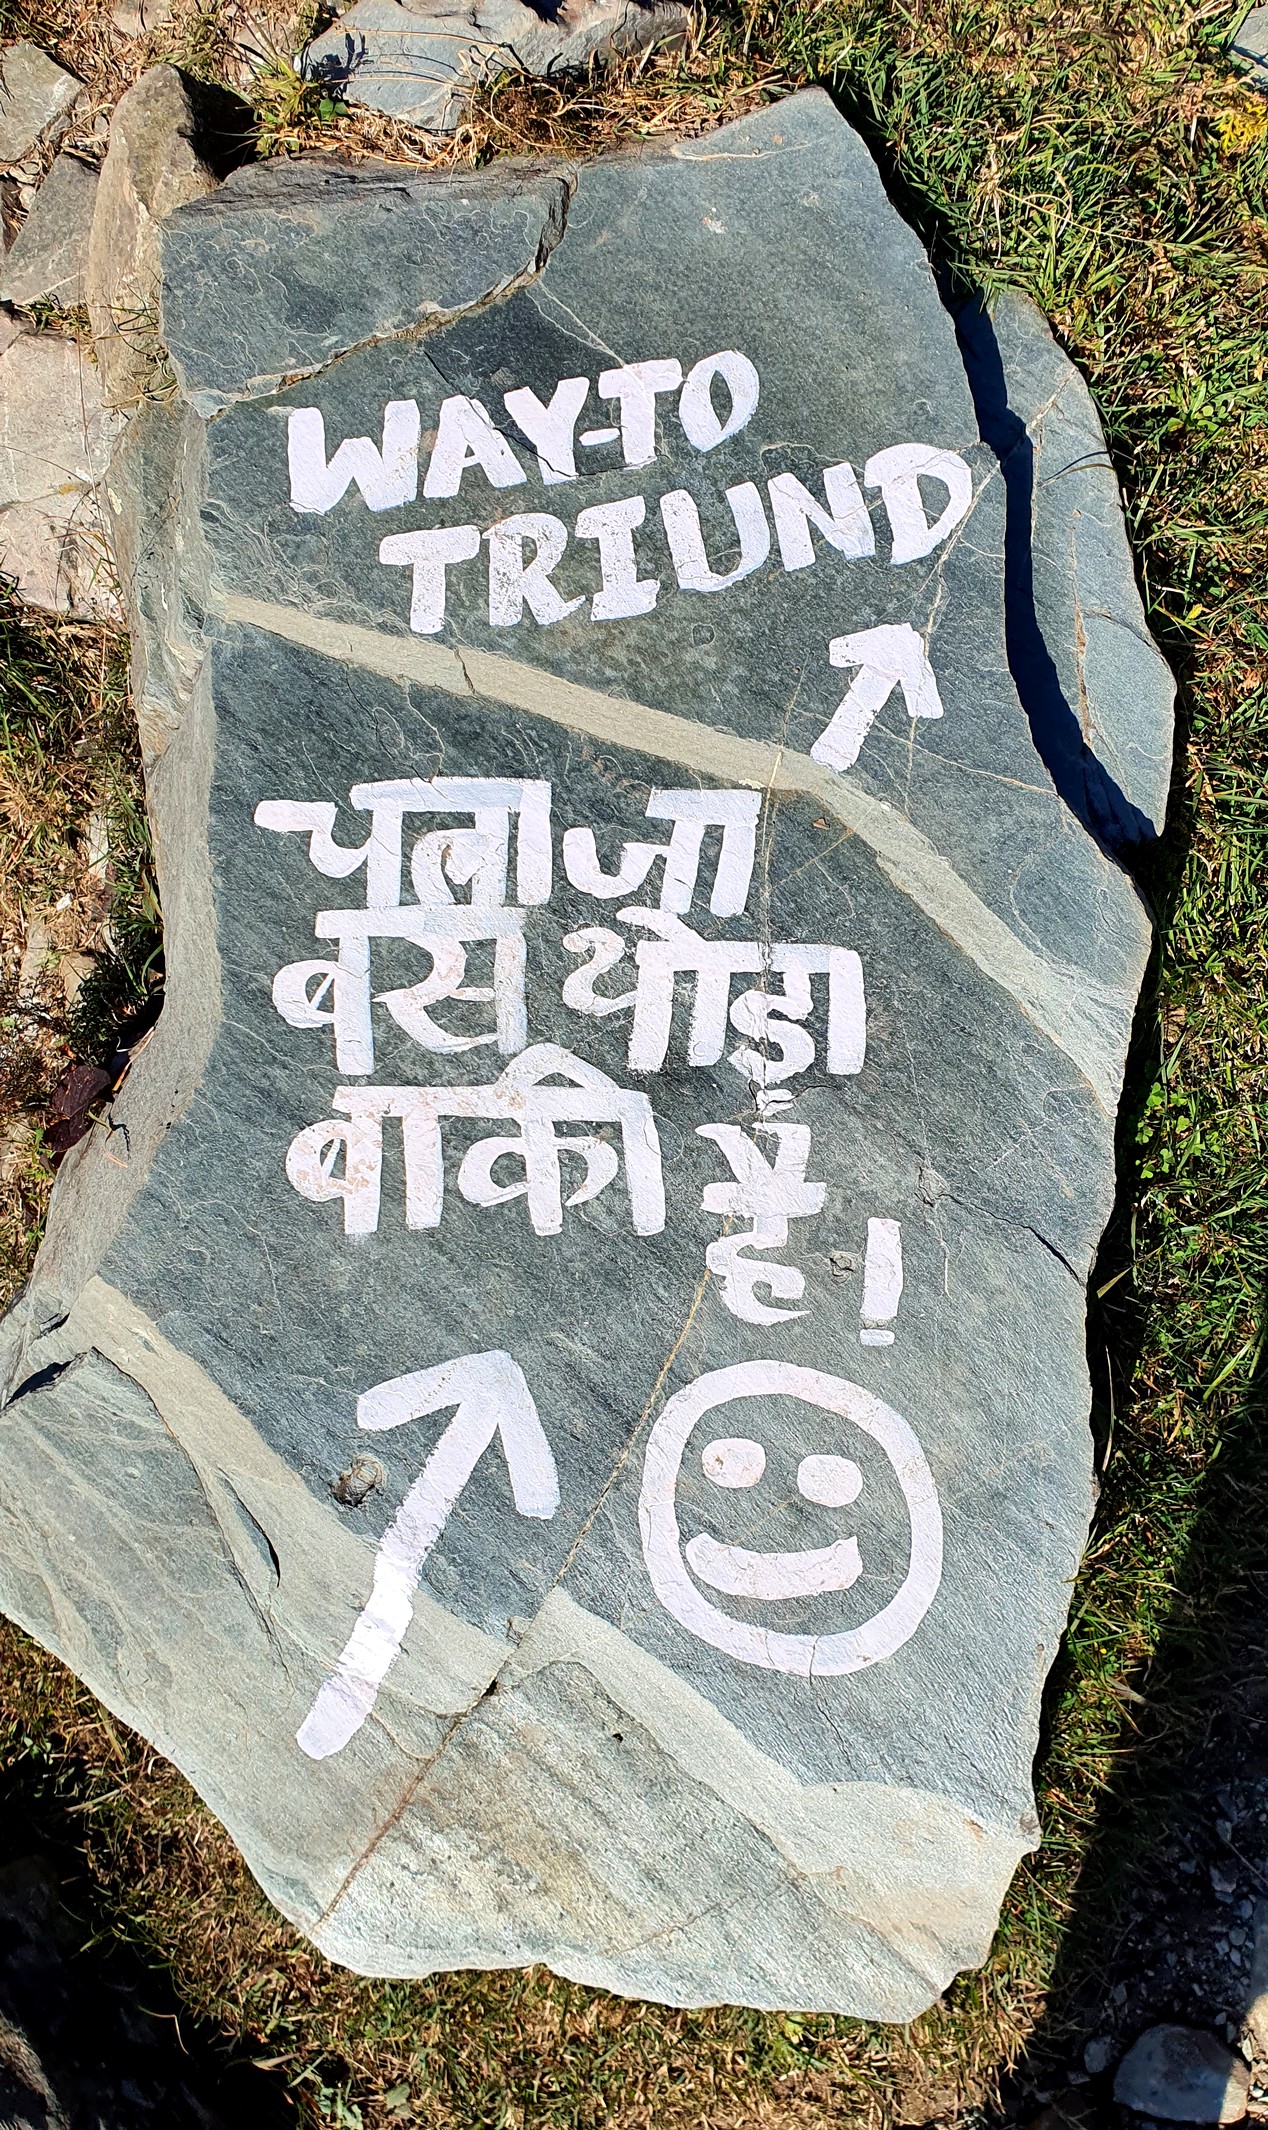 WAY-TO
TRIUND
चलाजा
बस थोडा
बाकी है!